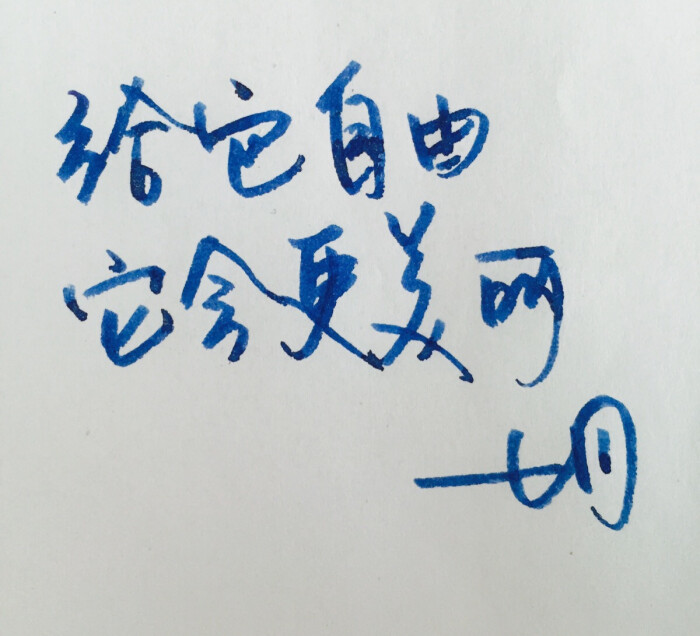 给它自由
它会更美啊
七月